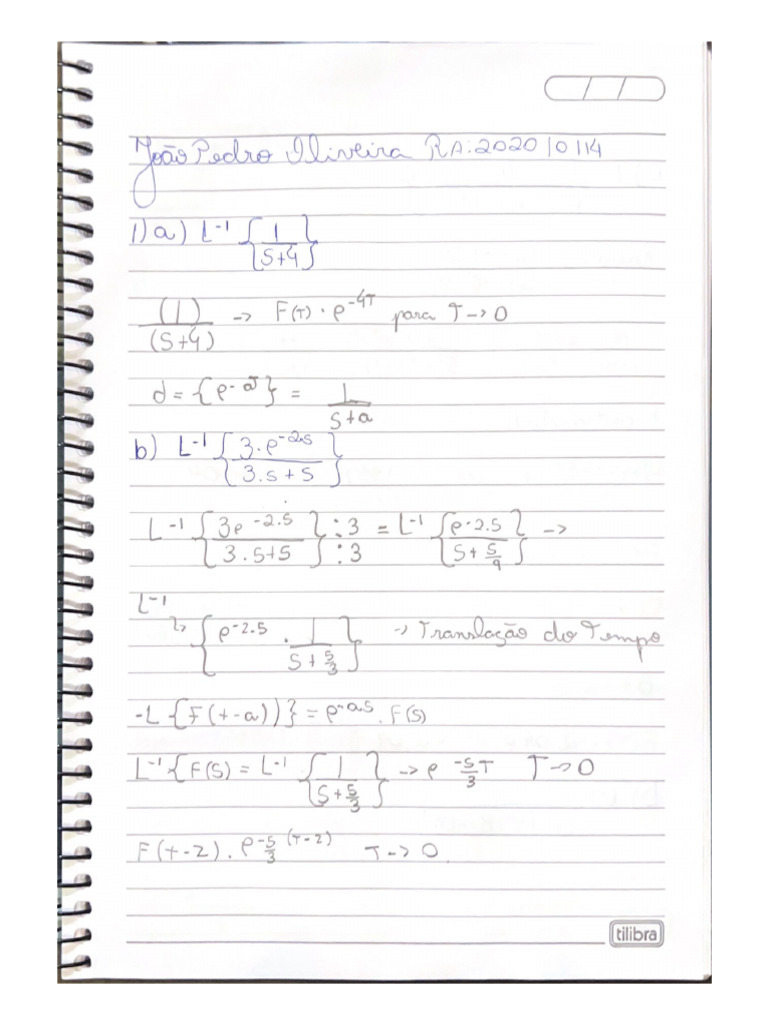 João Pedro Oliveira RA:2020 10114
1) a) L⁻¹ { 1 / S+4 }
(1) / (S+4) -> F(T) · e^-4T para T -> 0
d = { e^-aT } = 1 / S+a
b) L⁻¹ { 3·e^-2s / 3·s + 5 }
L⁻¹ { 3e^-2·s / 3·s+5 } :3 :3 = L⁻¹ { e^-2·s / S + 5/9 } ->
L⁻¹
↳ { e^-2·s · 1 / S + 5/3 } -> Translação do Tempo
-L { F(t-a)) } = e^-a·s · F(S)
L⁻¹ { F(S) = L⁻¹ { 1 / S + 5/3 } -> e^-5/3 T T -> 0
F(t-2) · e^-5/3 (T-2) T -> 0
tilibra